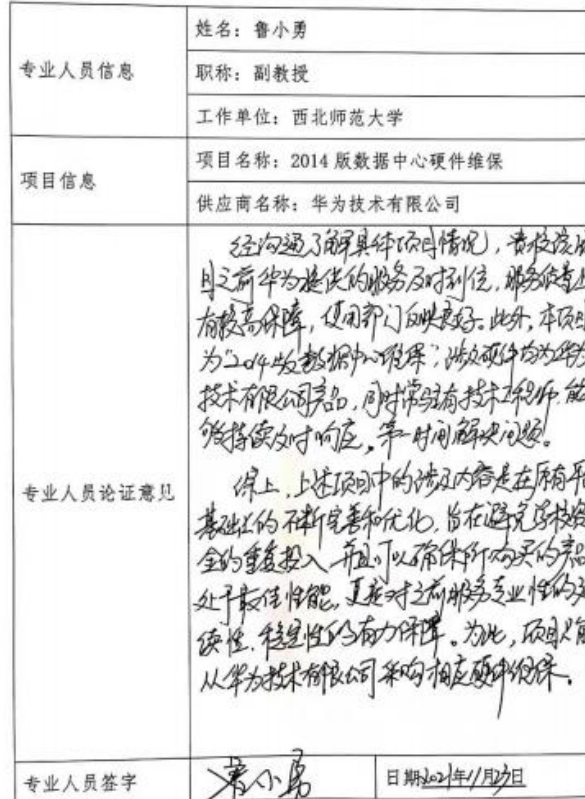 专业人员信息
姓名：鲁小勇
职称：副教授
工作单位：西北师范大学
项目信息
项目名称：2014 版数据中心硬件维保
供应商名称：华为技术有限公司
专业人员论证意见
经沟通了解具体项目情况，贵校该
目之前华为提供的服务及时到位，服务质量上
有较高保障，使用部门反映良好。此外，本项目
为“2014版数据中心维保”，涉及硬件均为华为
技术有限公司产品，同时常驻有技术工程师，能
够持续及时响应，第一时间解决问题。
综上，上述项目中的涉及内容是在原有平
基础上的不断完善和优化，旨在避免学校资
金的重复投入，并且可以确保所购买的产品
处于最佳性能，更是对之前服务专业性的
续性、稳定性的有力保障。为此，项目只能
从华为技术有限公司采购相应硬件维保。
专业人员签字
鲁小勇
日期2021年11月23日